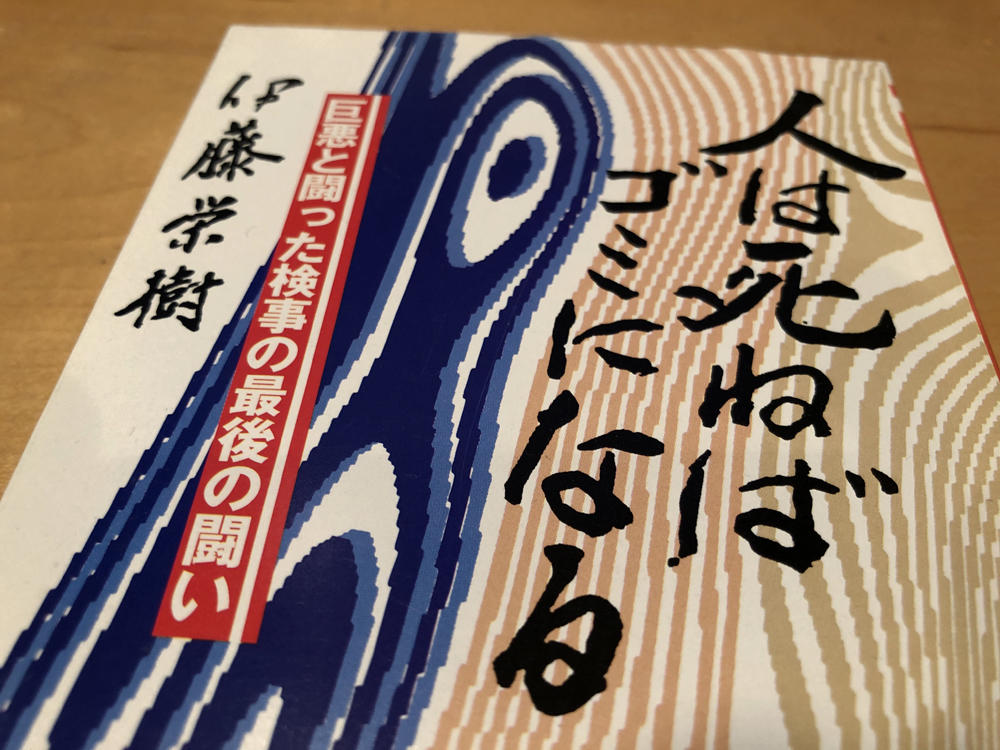 人は死ねば
ゴミになる
巨悪と闘った検事の最後の闘い
伊藤栄樹